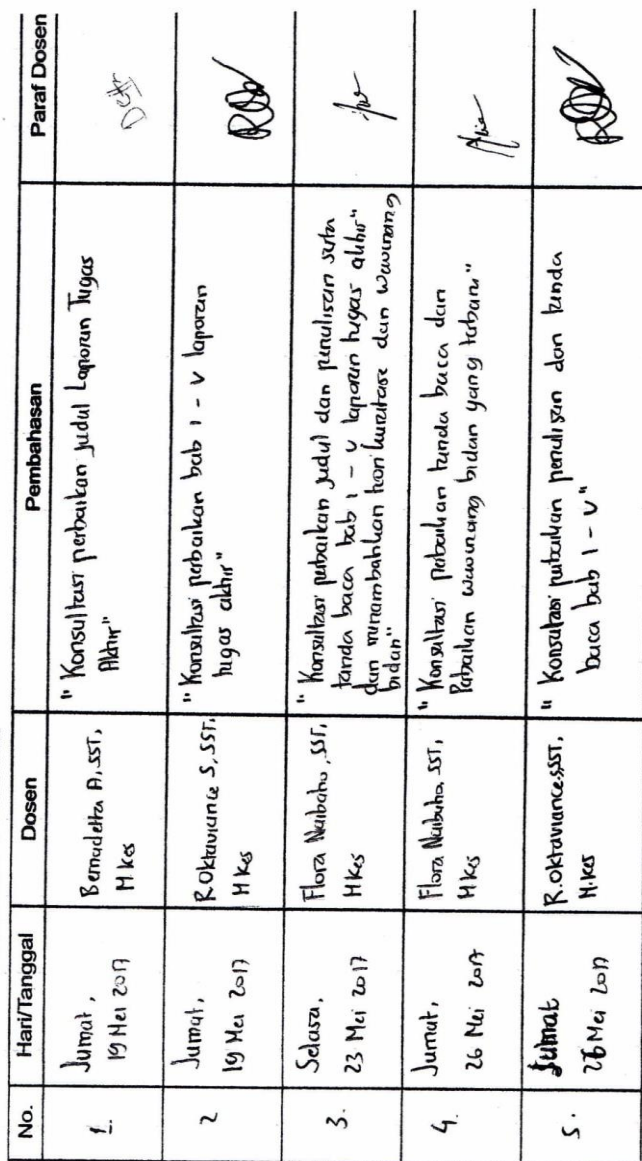 No. Hari/Tanggal Dosen Pembahasan Paraf Dosen
1. Jumat, 19 Mei 2017
Bernadetta A, SST,
M.Kes
"Konsultasi perbaikan judul Laporan Tugas
Akhir"
2 Jumat, 19 Mei 2017
R.Oktaviance S, SST,
M.Kes
"Konsultasi perbaikan bab I - V laporan
tugas akhir"
3. Selasa, 23 Mei 2017
Flora Naibaho, SST,
M.Kes
"Konsultasi perbaikan judul dan penulisan serta
tanda baca bab I - V laporan tugas akhir"
dan menambahkan wewenang
bidan"
4. Jumat, 26 Mei 2017
Flora Naibaho, SST,
M.Kes
"Konsultasi perbaikan tanda baca dan
Perbaikan wewenang bidan yang terbaru"
5. Jumat 26 Mei 2017
R.Oktaviance,SST,
M.Kes
"Konsultasi perbaikan penulisan dan tanda
baca bab I - V"